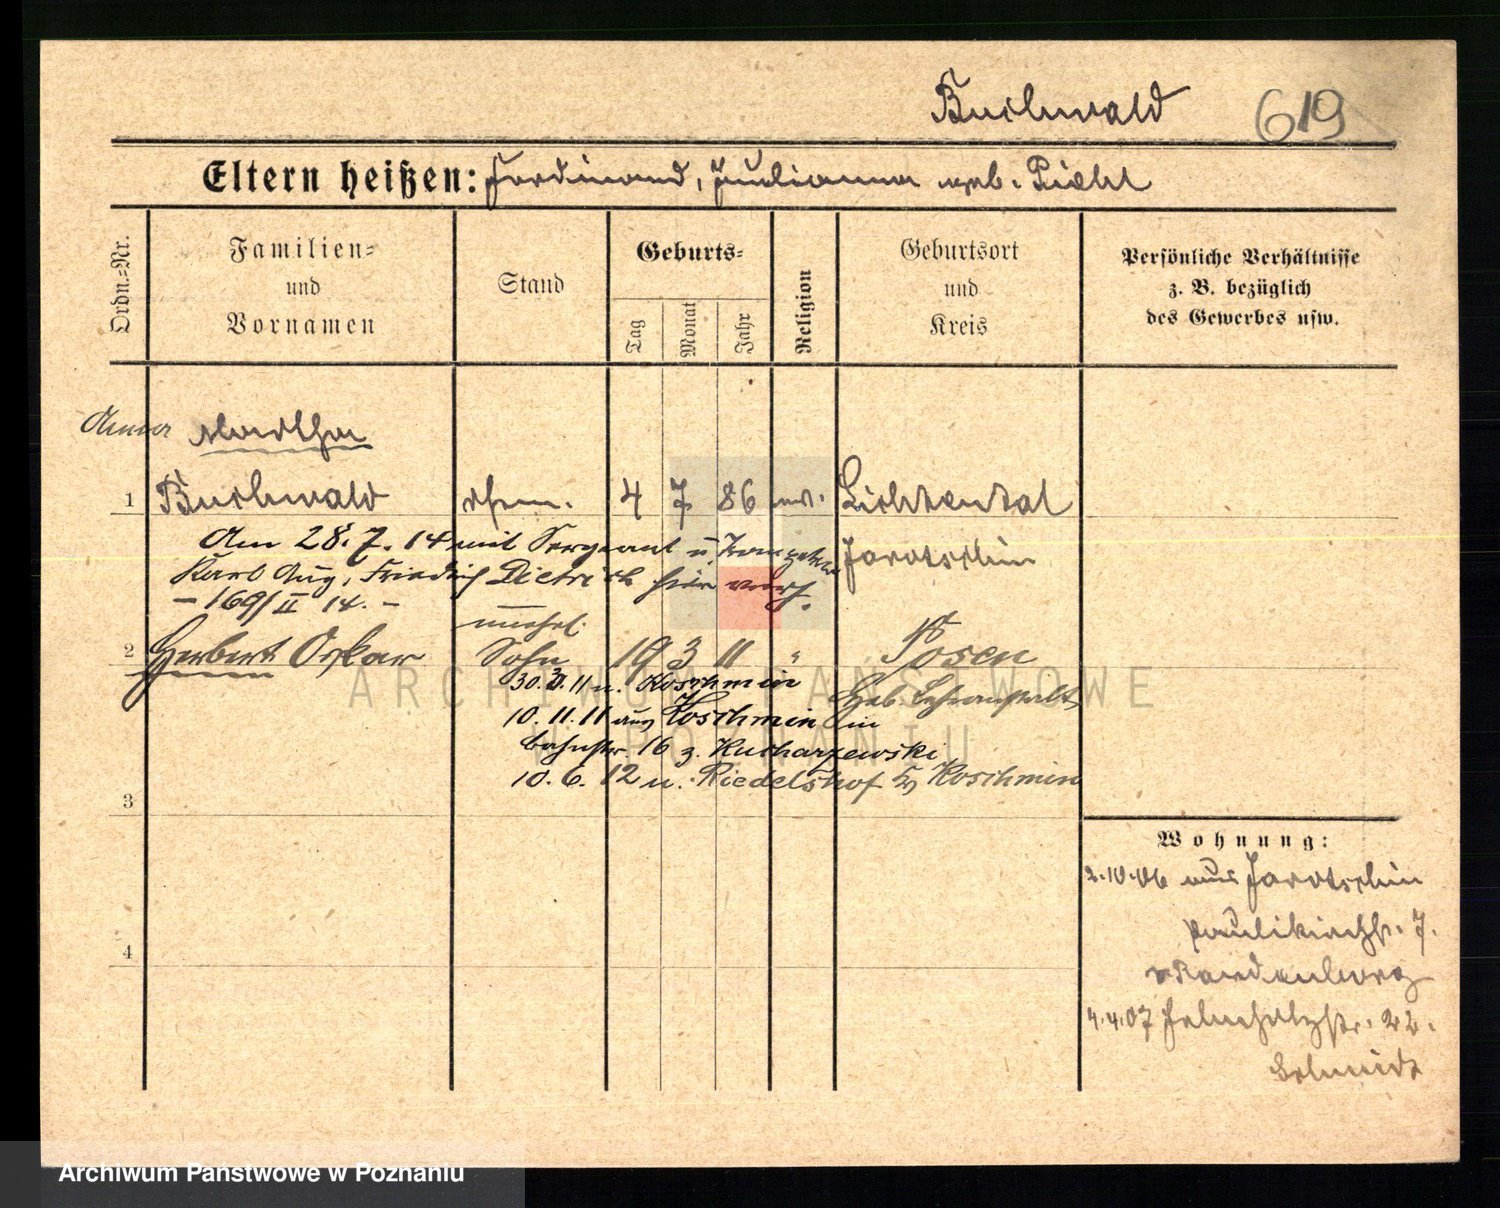 Buchwald 619
Eltern heißen: Ferdinand, Julianna geb. Picht
Ordn.-Nr.
Familien-
und
Vornamen
Stand
Geburts-
Tag
Monat
Jahr
Religion
Geburtsort
und
Kreis
Persönliche Verhältnisse
z. B. bezüglich
des Gewerbes usw.
Anna Martha
1 Buchwald 4 7 86 Lichtental
Jarotschin
Am 28.7.14 mit Sergeant u
Karl Aug, Friedrich Dietrich hier verh.
- 169/II 14. -
unehel.
2 Herbert Oskar Sohn 19 3 11 " Posen
30.3.11 n. Koschmin Heb. Lehranstalt
10.11.11 aus Koschmin in
Bahnstr. 16 z. Kucharzewski
10.6.12 n. Riedelshof Kr Koschmin
3
4
Wohnung:
2.10.06 aus Jarotschin
Paulikirchstr. 7.
4.4.07 22.
Schmidt
ARCHIWUM PAŃSTWOWE
W POZNANIU
Archiwum Państwowe w Poznaniu